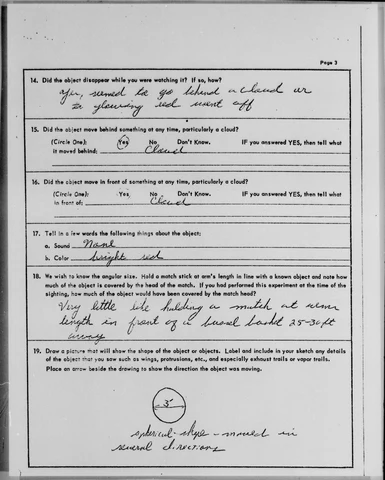 Page 3
14. Did the object disappear while you were watching it? If so, how?
Yes, seemed to go behind a Cloud or
glowing red went off
15. Did the object move behind something at any time, particularly a cloud?
(Circle One): Yes No Don't Know. IF you answered YES, then tell what
it moved behind: Cloud
16. Did the object move in front of something at any time, particularly a cloud?
(Circle One): Yes No Don't Know. IF you answered YES, then tell what
in front of: Cloud
17. Tell in a few words the following things about the object:
a. Sound None
b. Color bright red
18. We wish to know the angular size. Hold a match stick at arm's length in line with a known object and note how
much of the object is covered by the head of the match. If you had performed this experiment at the time of the
sighting, how much of the object would have been covered by the match head?
Very little like holding a match at arms
length in front of a basket 25-30 ft
away
19. Draw a picture that will show the shape of the object or objects. Label and include in your sketch any details
of the object that you saw such as wings, protrusions, etc., and especially exhaust trails or vapor trails.
Place an arrow beside the drawing to show the direction the object was moving.
spherical-shape-moved in
several directions